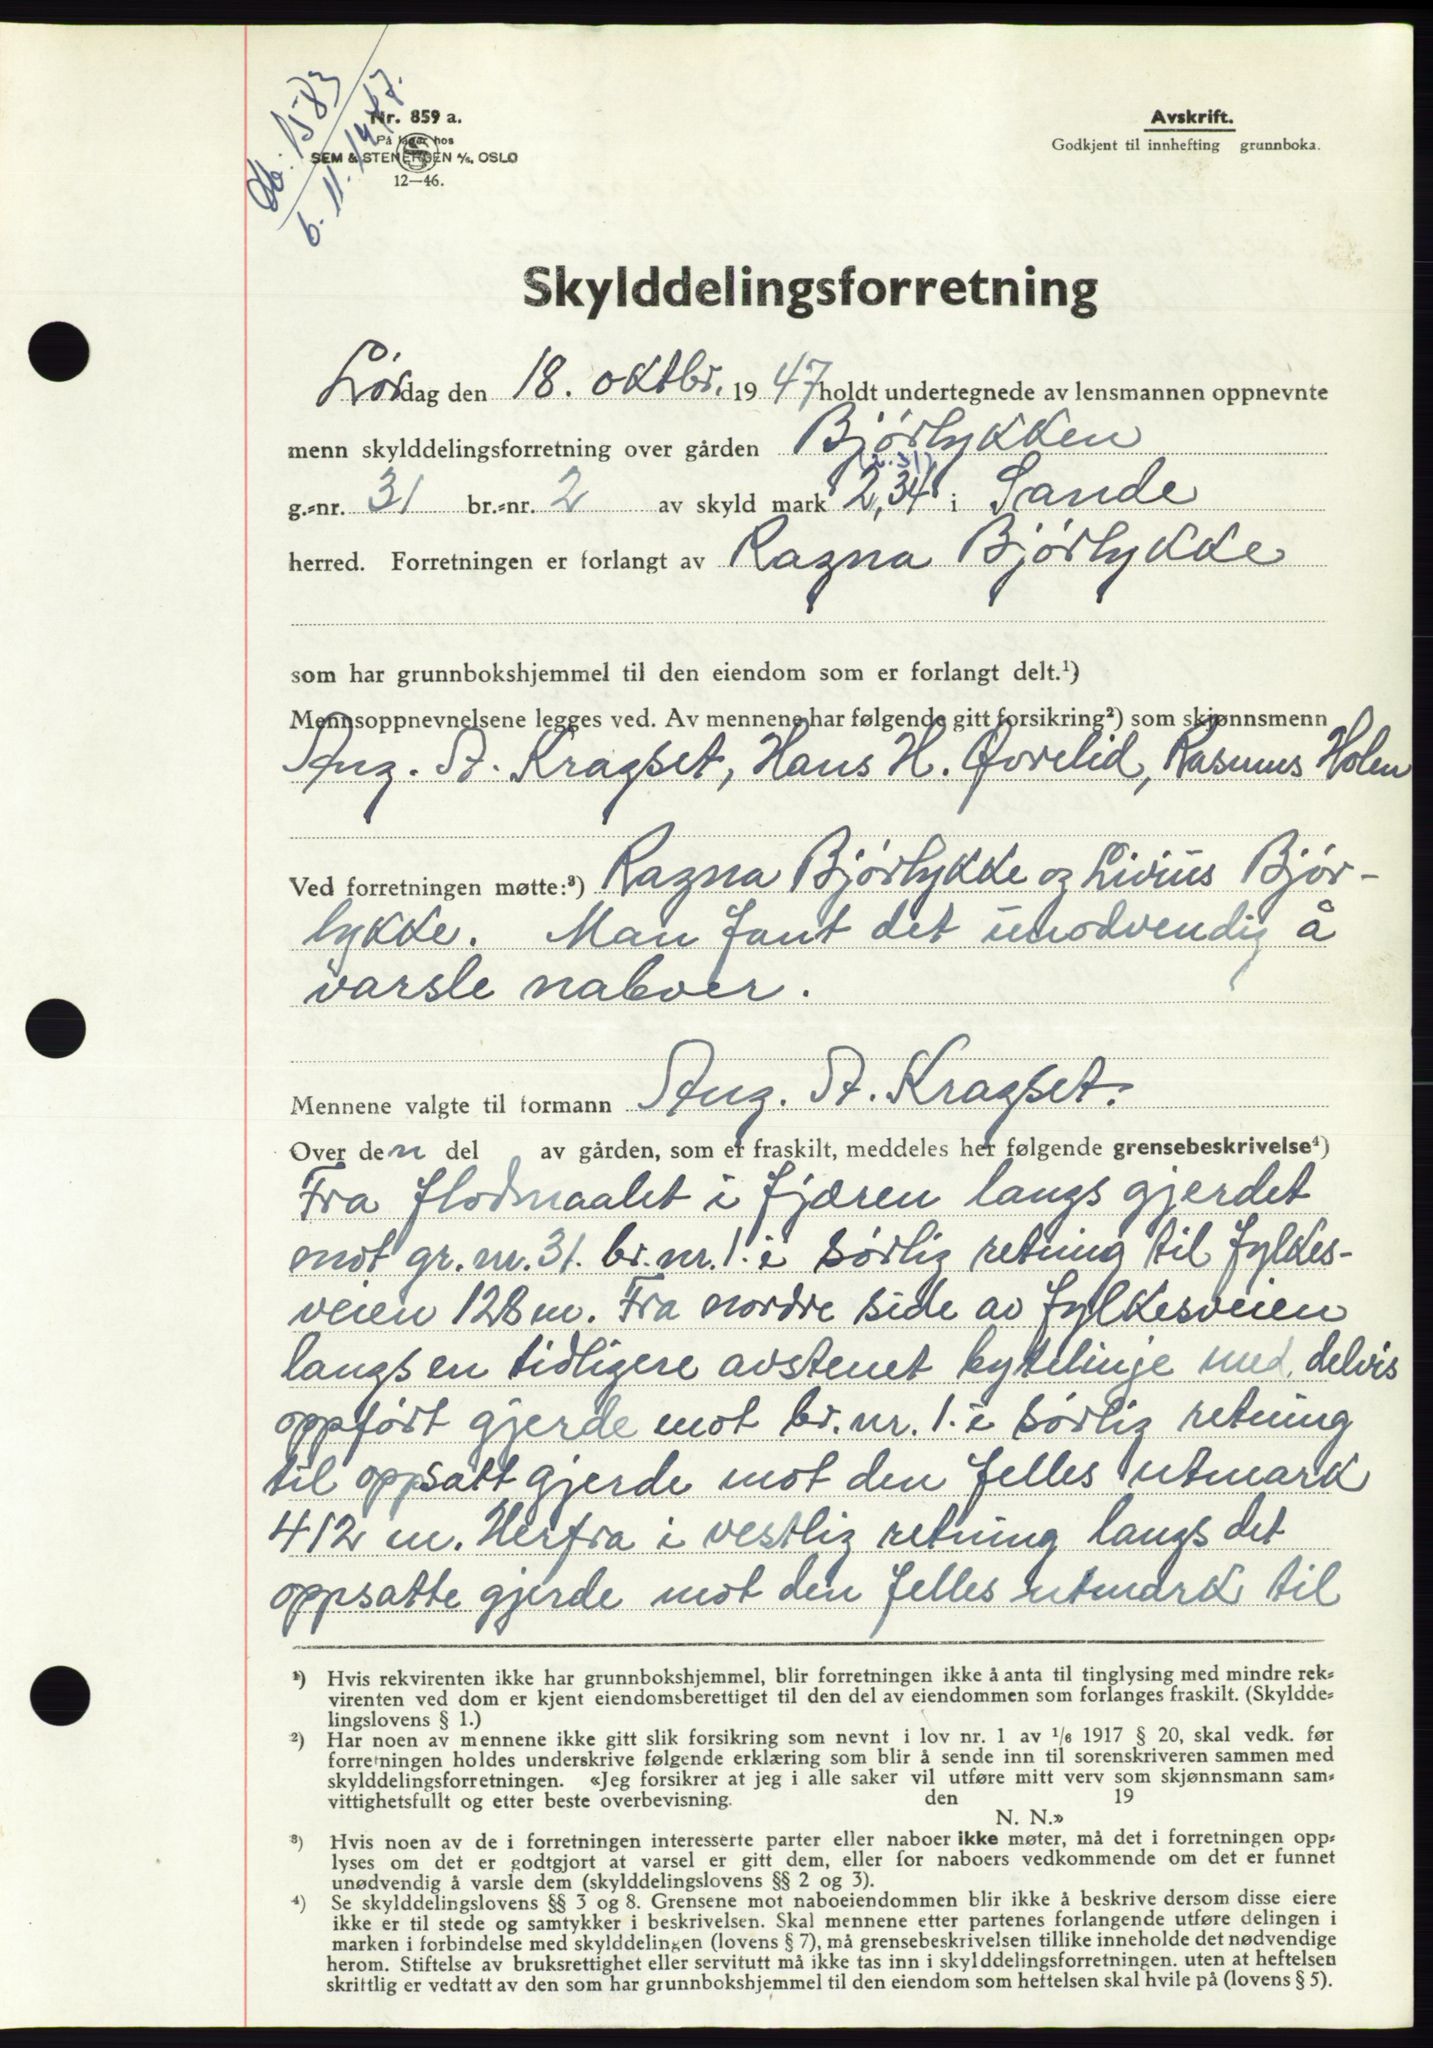 Db. 1583
6.11.1947.
Nr. 859 a.
På lager hos
SEM & STENERSEN A/S, OSLO
12—46.
Avskrift.
Godkjent til innhefting grunnboka.
Skylddelingsforretning
Lørdag den 18. oktbr. 1947 holdt undertegnede av lensmannen oppnevnte
menn skylddelingsforretning over gården Bjørlykken
(2.31)
g.=nr. 31 br.=nr. 2 av skyld mark 2,34 i Sande
herred. Forretningen er forlangt av Ragna Bjørlykke
som har grunnbokshjemmel til den eiendom som er forlangt delt.¹)
Mennsoppnevnelsene legges ved. Av mennene har følgende gitt forsikring²) som skjønnsmenn
Aug. A. Kragset, Hans H. Qvrelid, Rasmus Holen
Ved forretningen møtte:³) Ragna Bjørlykke og Livius Bjør-
lykke. Man fant det unødvendig å
varsle naboer.
Mennene valgte til formann Aug. A. Kragset.
Over den del av gården, som er fraskilt, meddeles her følgende grensebeskrivelse⁴)
Fra flodmaalet i fjæren langs gjerdet
mot gr. nr. 31. br. nr. 1. i sørlig retning til fylkes-
veien 128 m. Fra nordre side av fylkesveien
langs en tidligere avstenet bytelinje med delvis
oppført gjerde mot br. nr. 1. i sørlig retning
til oppsatt gjerde mot den felles utmark
412 m. Herfra i vestlig retning langs det
oppsatte gjerde mot den felles utmark til
¹) Hvis rekvirenten ikke har grunnbokshjemmel, blir forretningen ikke å anta til tinglysing med mindre rek=
virenten ved dom er kjent eiendomsberettiget til den del av eiendommen som forlanges fraskilt. (Skyldde=
lingslovens § 1.)
²) Har noen av mennene ikke gitt slik forsikring som nevnt i lov nr. 1 av 1/6 1917 § 20, skal vedk. før
forretningen holdes underskrive følgende erklæring som blir å sende inn til sorenskriveren sammen med
skylddelingsforretningen. «Jeg forsikrer at jeg i alle saker vil utføre mitt verv som skjønnsmann sam=
vittighetsfullt og etter beste overbevisning. den 19
N. N.»
³) Hvis noen av de i forretningen interesserte parter eller naboer ikke møter, må det i forretningen opp=
lyses om det er godtgjort at varsel er gitt dem, eller for naboers vedkommende om det er funnet
unødvendig å varsle dem (skylddelingslovens §§ 2 og 3).
⁴) Se skylddelingslovens §§ 3 og 8. Grensene mot naboeiendommen blir ikke å beskrive dersom disse eiere
ikke er til stede og samtykker i beskrivelsen. Skal mennene etter partenes forlangende utføre delingen i
marken i forbindelse med skylddelingen (lovens § 7), må grensebeskrivelsen tillike inneholde det nødvendige
herom. Stiftelse av bruksrettighet eller servitutt må ikke tas inn i skylddelingsforretningen. uten at heftelsen
skriftlig er vedtatt av den som har grunnbokshjemmel til den eiendom som heftelsen skal hvile på (lovens § 5).